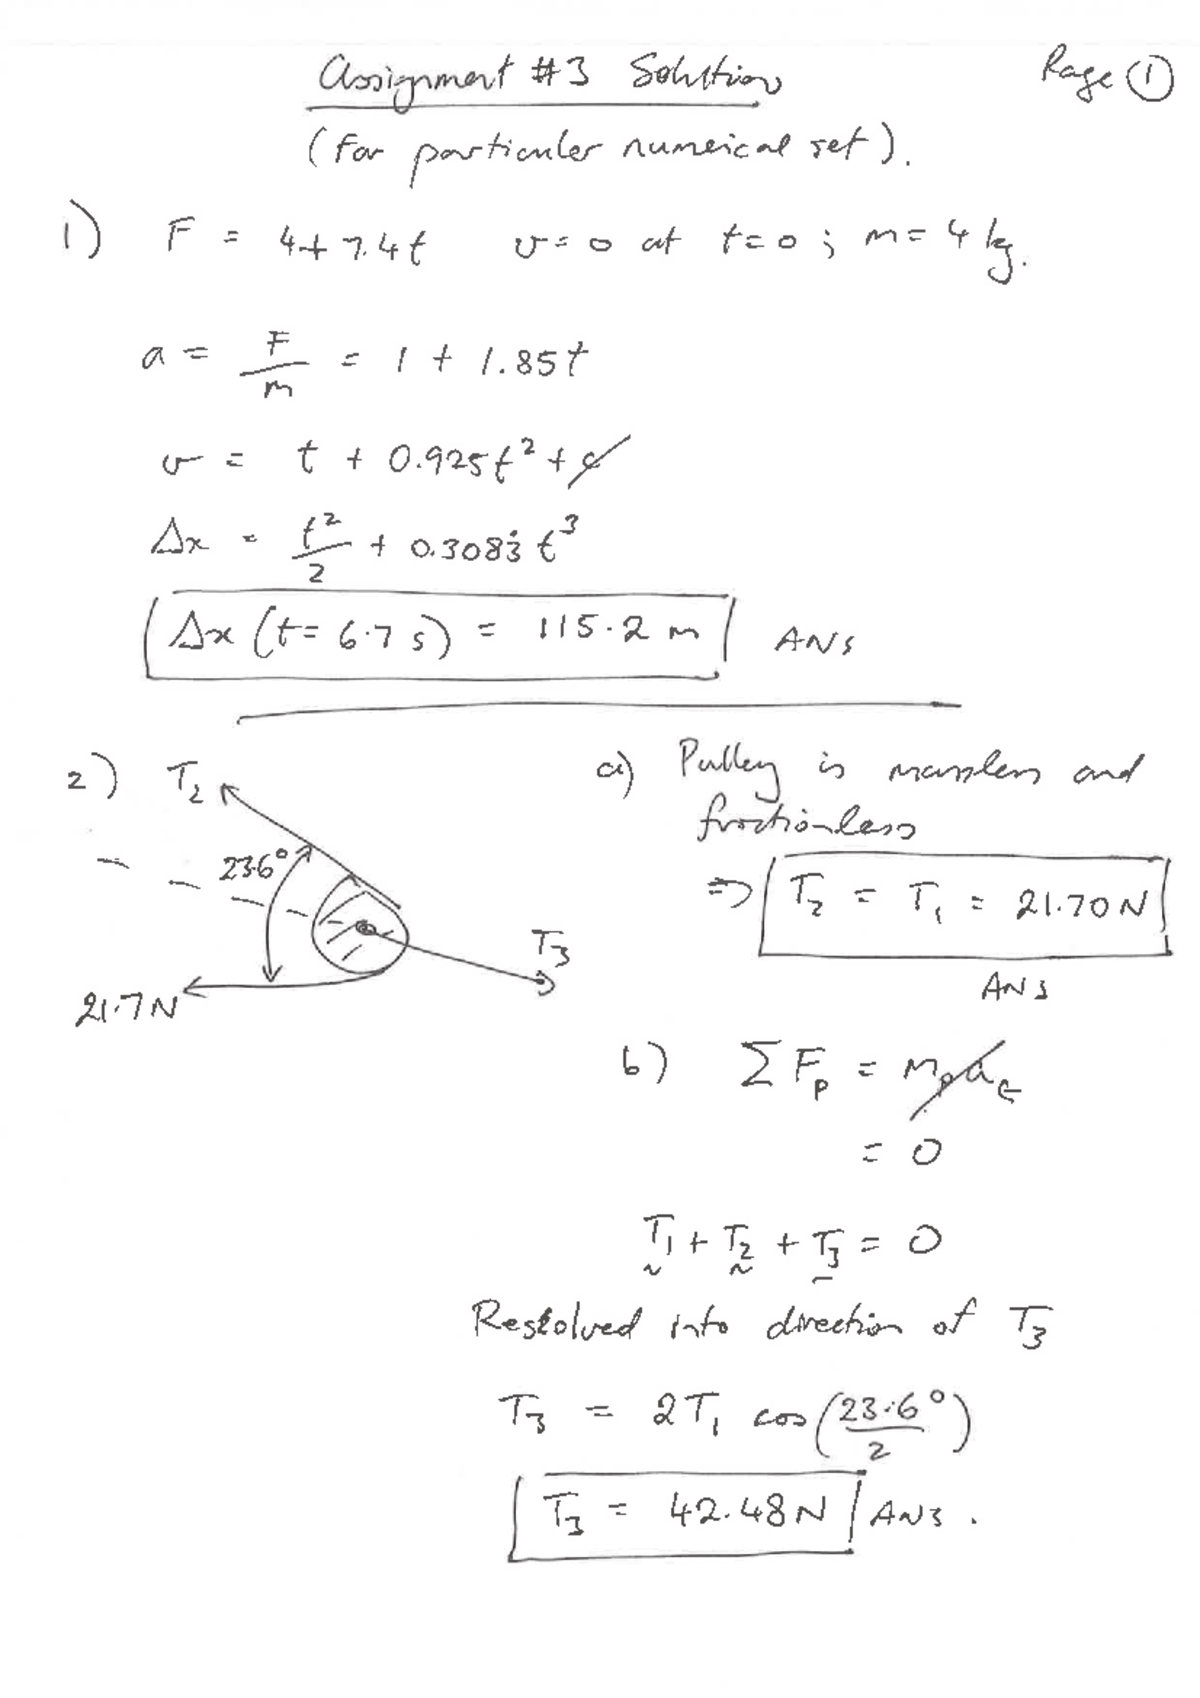 Assignment #3 Solution
Page ①
(For particular numerical set).
1) F = 4+7.4t v=0 at t=0; m=4kg.
a = F/m = 1 + 1.85t
v = t + 0.925t² + c
Δx = t²/2 + 0.3083̇ t³
Δx (t=6.7s) = 115.2 m ANS
2) T₂
23.6°
T₃
21.7N
a) Pulley is massless and
frictionless
⇒ T₂ = T₁ = 21.70N
ANS
b) ΣF_p = m_p a_c
= 0
T₁ + T₂ + T₃ = 0
Resolved into direction of T₃
T₃ = 2T₁ cos(23.6°/2)
T₃ = 42.48N ANS.